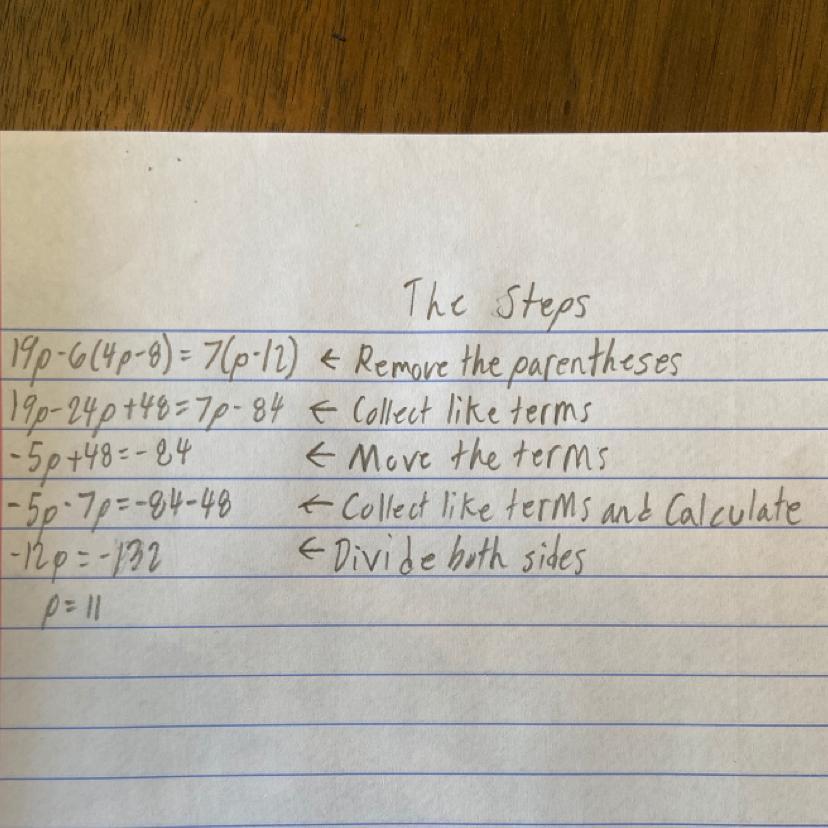 The Steps
19p-6(4p-8)=7(p-12) ← Remove the parentheses
19p-24p+48=7p-84 ← Collect like terms
-5p+48=-84 ← Move the terms
-5p-7p=-84-48 ← Collect like terms and Calculate
-12p=-132 ← Divide both sides
p=11